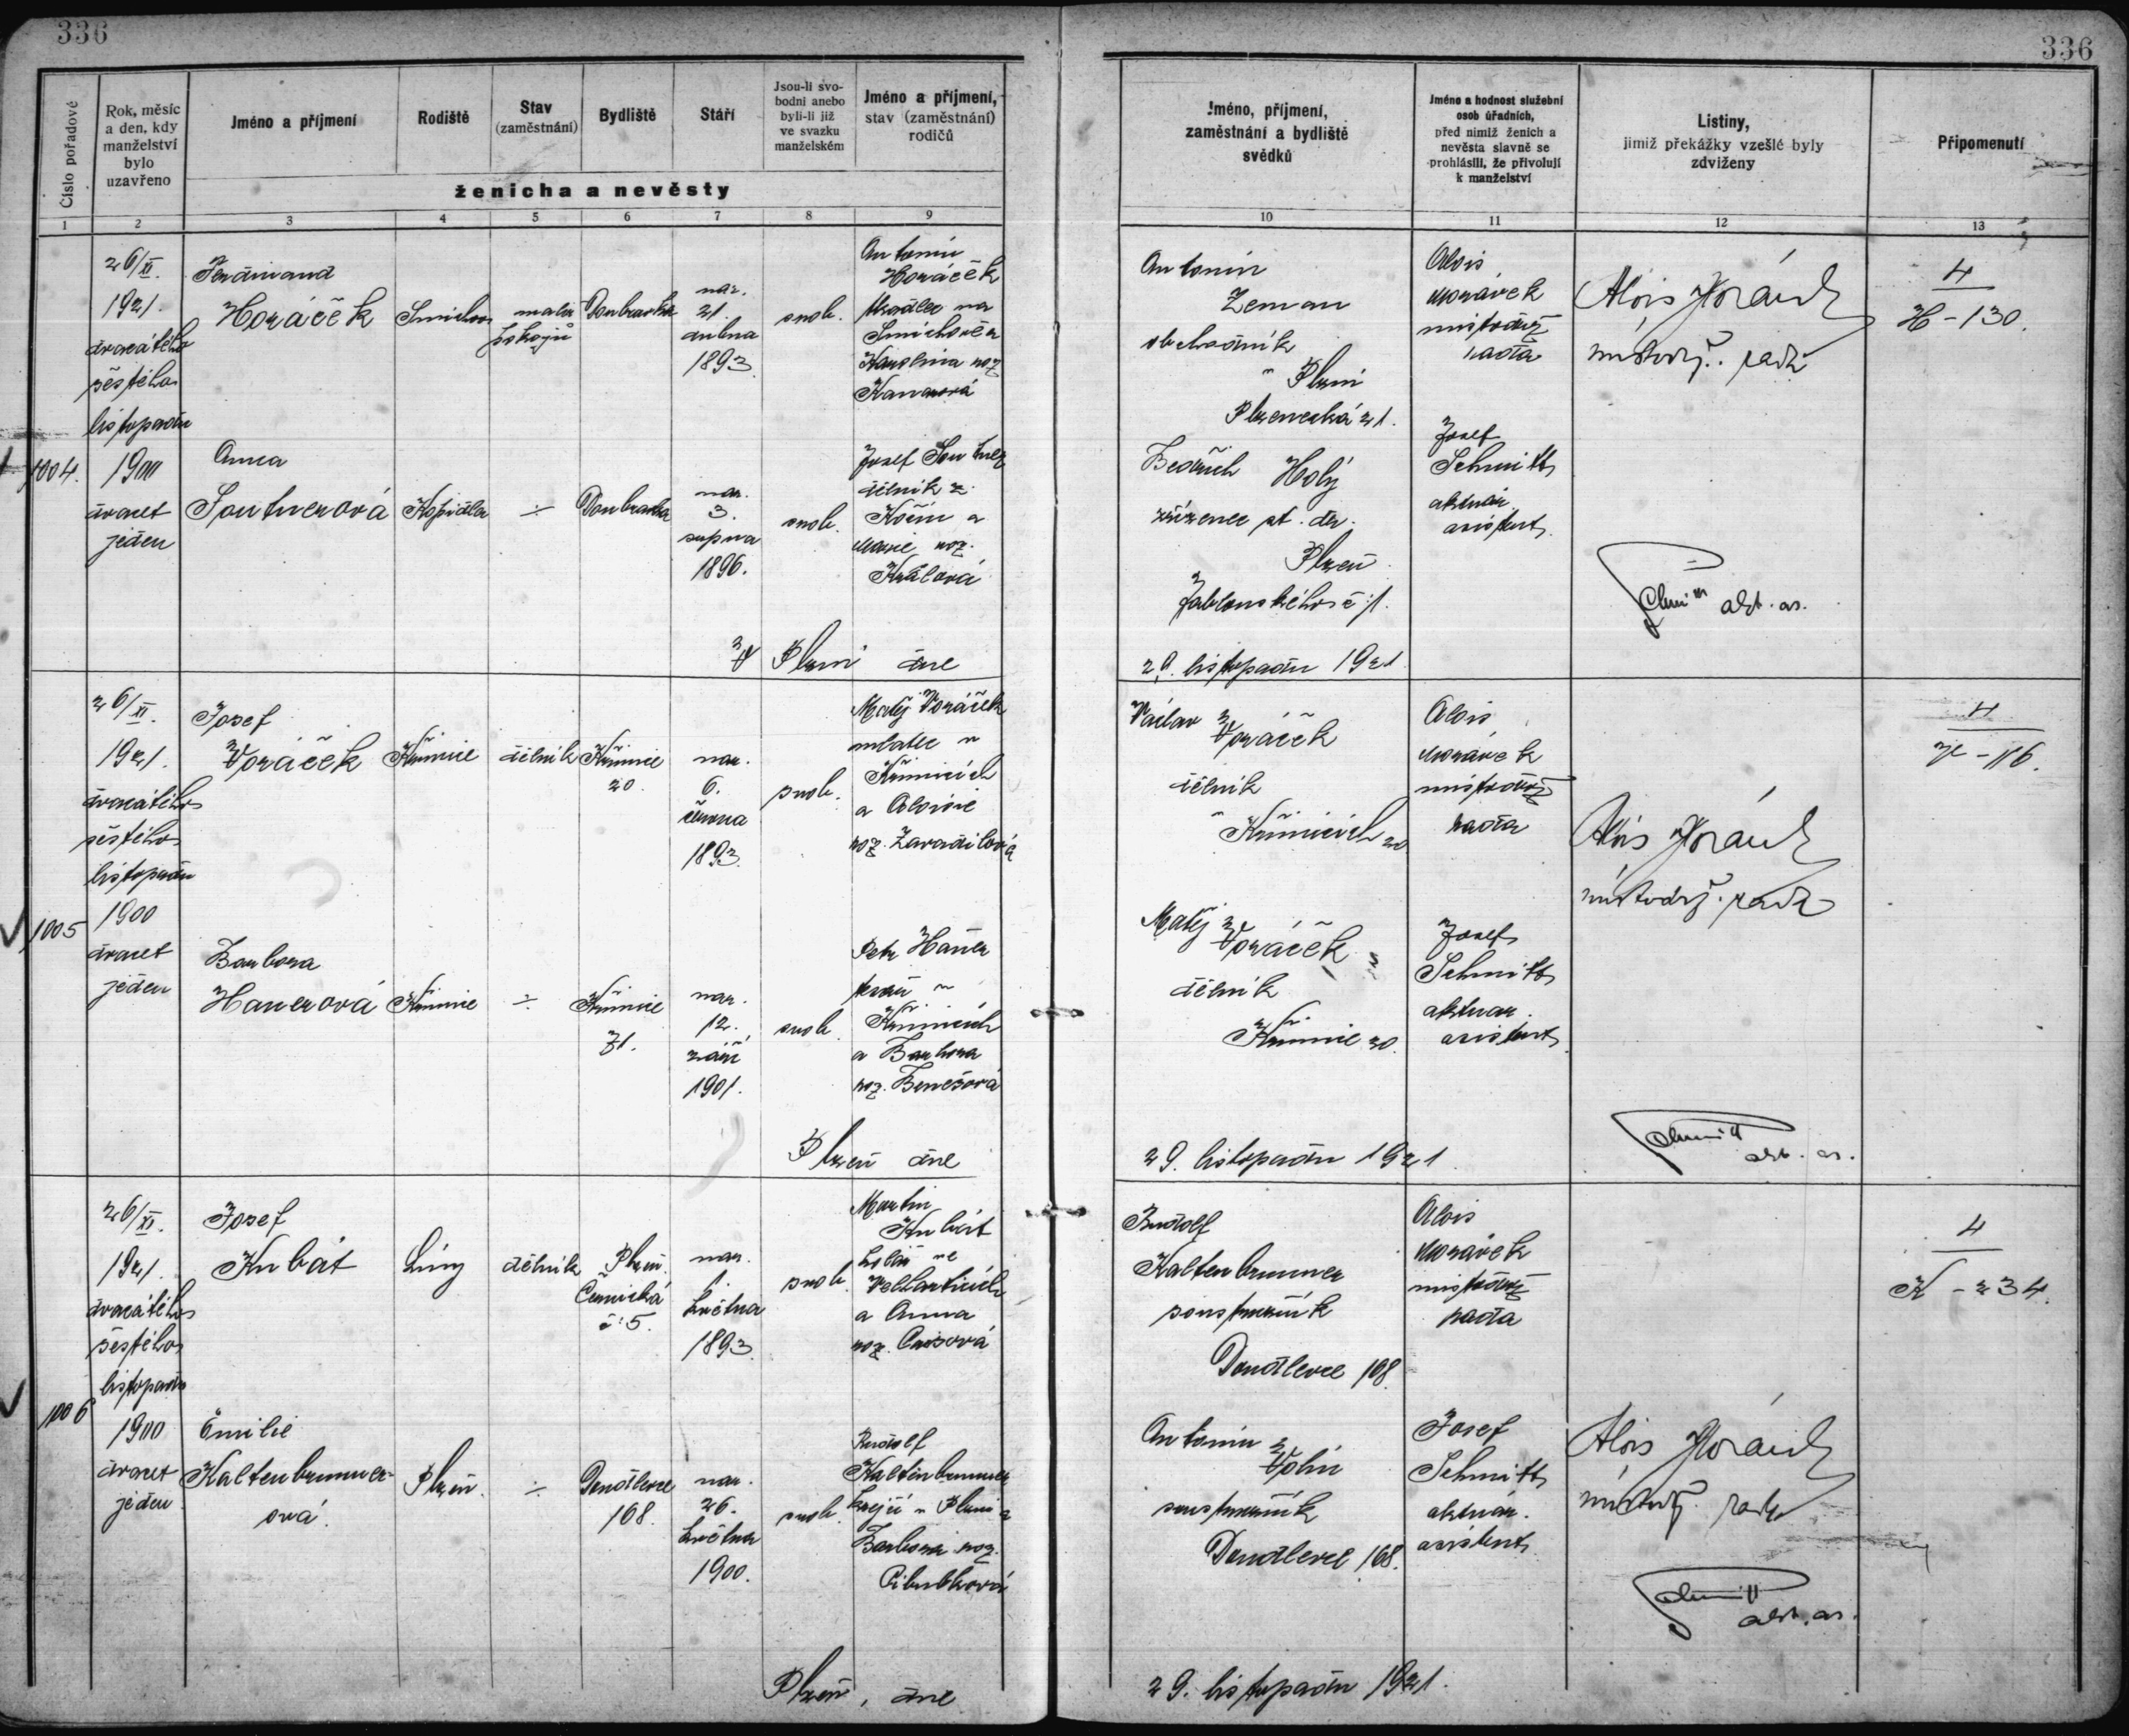 336
336
Číslo pořadové
Rok, měsíc
a den, kdy
manželství
bylo
uzavřeno
Jméno a příjmení
Rodiště
Stav
(zaměstnání)
Bydliště
Stáří
Jsou-li svo-
bodni anebo
byli-li již
ve svazku
manželském
Jméno a příjmení,
stav (zaměstnání)
rodičů
ženicha a nevěsty
Jméno, příjmení,
zaměstnání a bydliště
svědků
Jméno a hodnost služební
osob úřadních,
před nimiž ženich a
nevěsta slavně se
prohlásili, že přivolují
k manželství
Listiny,
jimiž překážky vzešlé byly
zdviženy
Připomenutí
1
2
3
4
5
6
7
8
9
10
11
12
13
1004.
26/XI.
1921.
dvacátého
šestého
listopadu
1900
dvacet
jeden
Ferdinand
Horáček
Smíchov
malíř
pokojů
Doubravka
nar.
21.
dubna
1893.
svob.
Antonín
Horáček
na
Smíchově a
Karolina roz.
Anna
Soutnerová
Kopidlno
÷
Doubravka
nar.
3.
srpna
1896.
svob.
Josef
dělník z
a
Marie roz.
Králová
V Plzni dne
29. listopadu 1921.
Antonín
Zeman
obchodník
v Plzni
Plzenecká 21.
Bedřich Holý
zřízenec st. dr.
Plzeň
Jablonského č. 1.
Alois
Morávek
místodrž.
rada
Josef
Schmitt
aktuár.
asistent.
Alois Morávek
místodrž. rada
Schmitt akt. as.
4
H-130.
1005
26/XI.
1921.
dvacátého
šestého
listopadu
1900
dvacet
jeden
Josef
Voráček
Křimice
dělník
Křimice
20.
nar.
6.
června
1893.
svob.
Matěj Voráček
mlatec v
Křimicích
a Aloisie
roz. Zavadilová
Barbora
Hanerová
Křimice
÷
Křimice
71.
nar.
12.
září
1901.
svob.
Petr Haner
v
Křimicích
a Barbora
roz. Benešová
Plzeň dne
29. listopadu 1921.
Václav
Voráček
dělník
v Křimicích 20
Matěj
Voráček
dělník
Křimice 20.
Alois
Morávek
místodrž.
rada
Josef
Schmitt
aktuár.
asistent.
Alois Morávek
místodrž. rada
Schmitt
akt. as.
4
-116.
1006
26/XI.
1921.
dvacátého
šestého
listopadu
1900
dvacet
jeden
Josef
Kubát
Líny
dělník
Plzeň
č. 5.
nar.
1.
května
1893.
svob.
Martin
Kubát
kolář ve
a Anna
roz.
Emilie
Kaltenbrunner-
ová
Plzeň.
÷
Doudlevce
168.
nar.
26.
května
1900.
svob.
Rudolf
Kaltenbrunner
krejčí v Plzni a
Barbora roz.
Cibulková
Plzeň, dne
29. listopadu 1921.
Rudolf
Kaltenbrunner
soustružník
Doudlevce 168.
Antonín
Volín
soustružník
Doudlevce 168.
Alois
Morávek
místodrž.
rada
Josef
Schmitt
aktuár.
asistent.
Alois Morávek
místodrž. rada
Schmitt
akt. as.
4
K-234.